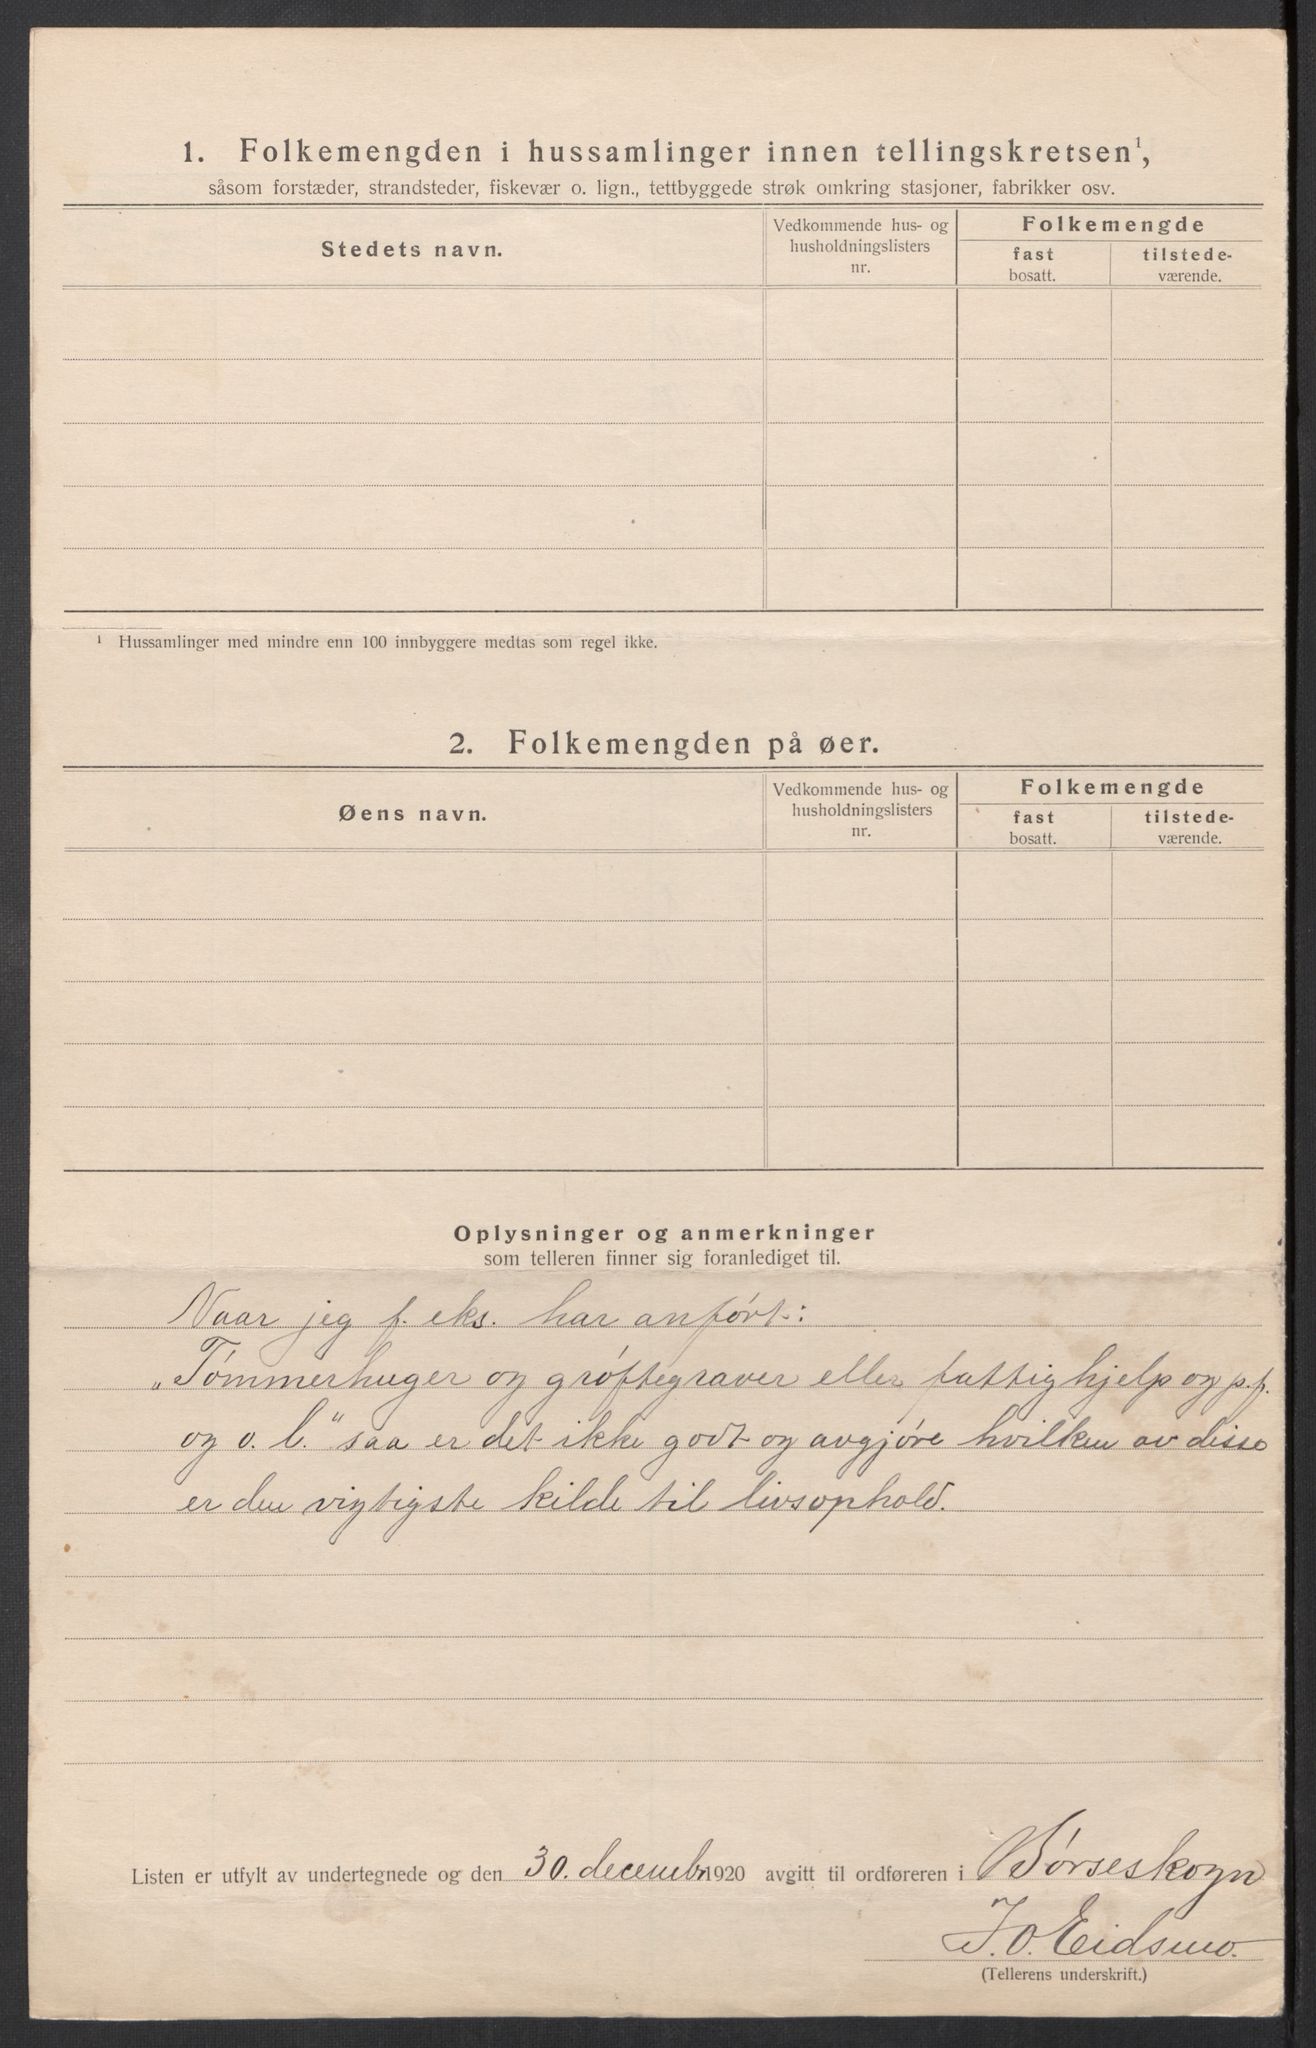 1. Folkemengden i hussamlinger innen tellingskretsen¹,
såsom forstæder, strandsteder, fiskevær o. lign., tettbyggede strøk omkring stasjoner, fabrikker osv.
Stedets navn.
Vedkommende hus- og
husholdningslisters
nr.
Folkemengde
fast
bosatt.
tilstede-
værende.
¹ Hussamlinger med mindre enn 100 innbyggere medtas som regel ikke.
2. Folkemengden på øer.
Øens navn.
Vedkommende hus- og
husholdningslisters
nr.
Folkemengde
fast
bosatt.
tilstede-
værende.
Oplysninger og anmerkninger
som telleren finner sig foranlediget til.
Naar jeg f. eks. har anført:
„Tømmerhuger og grøftegraver eller fattighjelp og p.p.
og o. l." saa er det ikke godt og avgjøre hvilken av disse
er den vigtigste kilde til livsophold.
Listen er utfylt av undertegnede og den 30. decembr 1920 avgitt til ordføreren i Børseskogn
J. O. Eidsmo.
(Tellerens underskrift.)